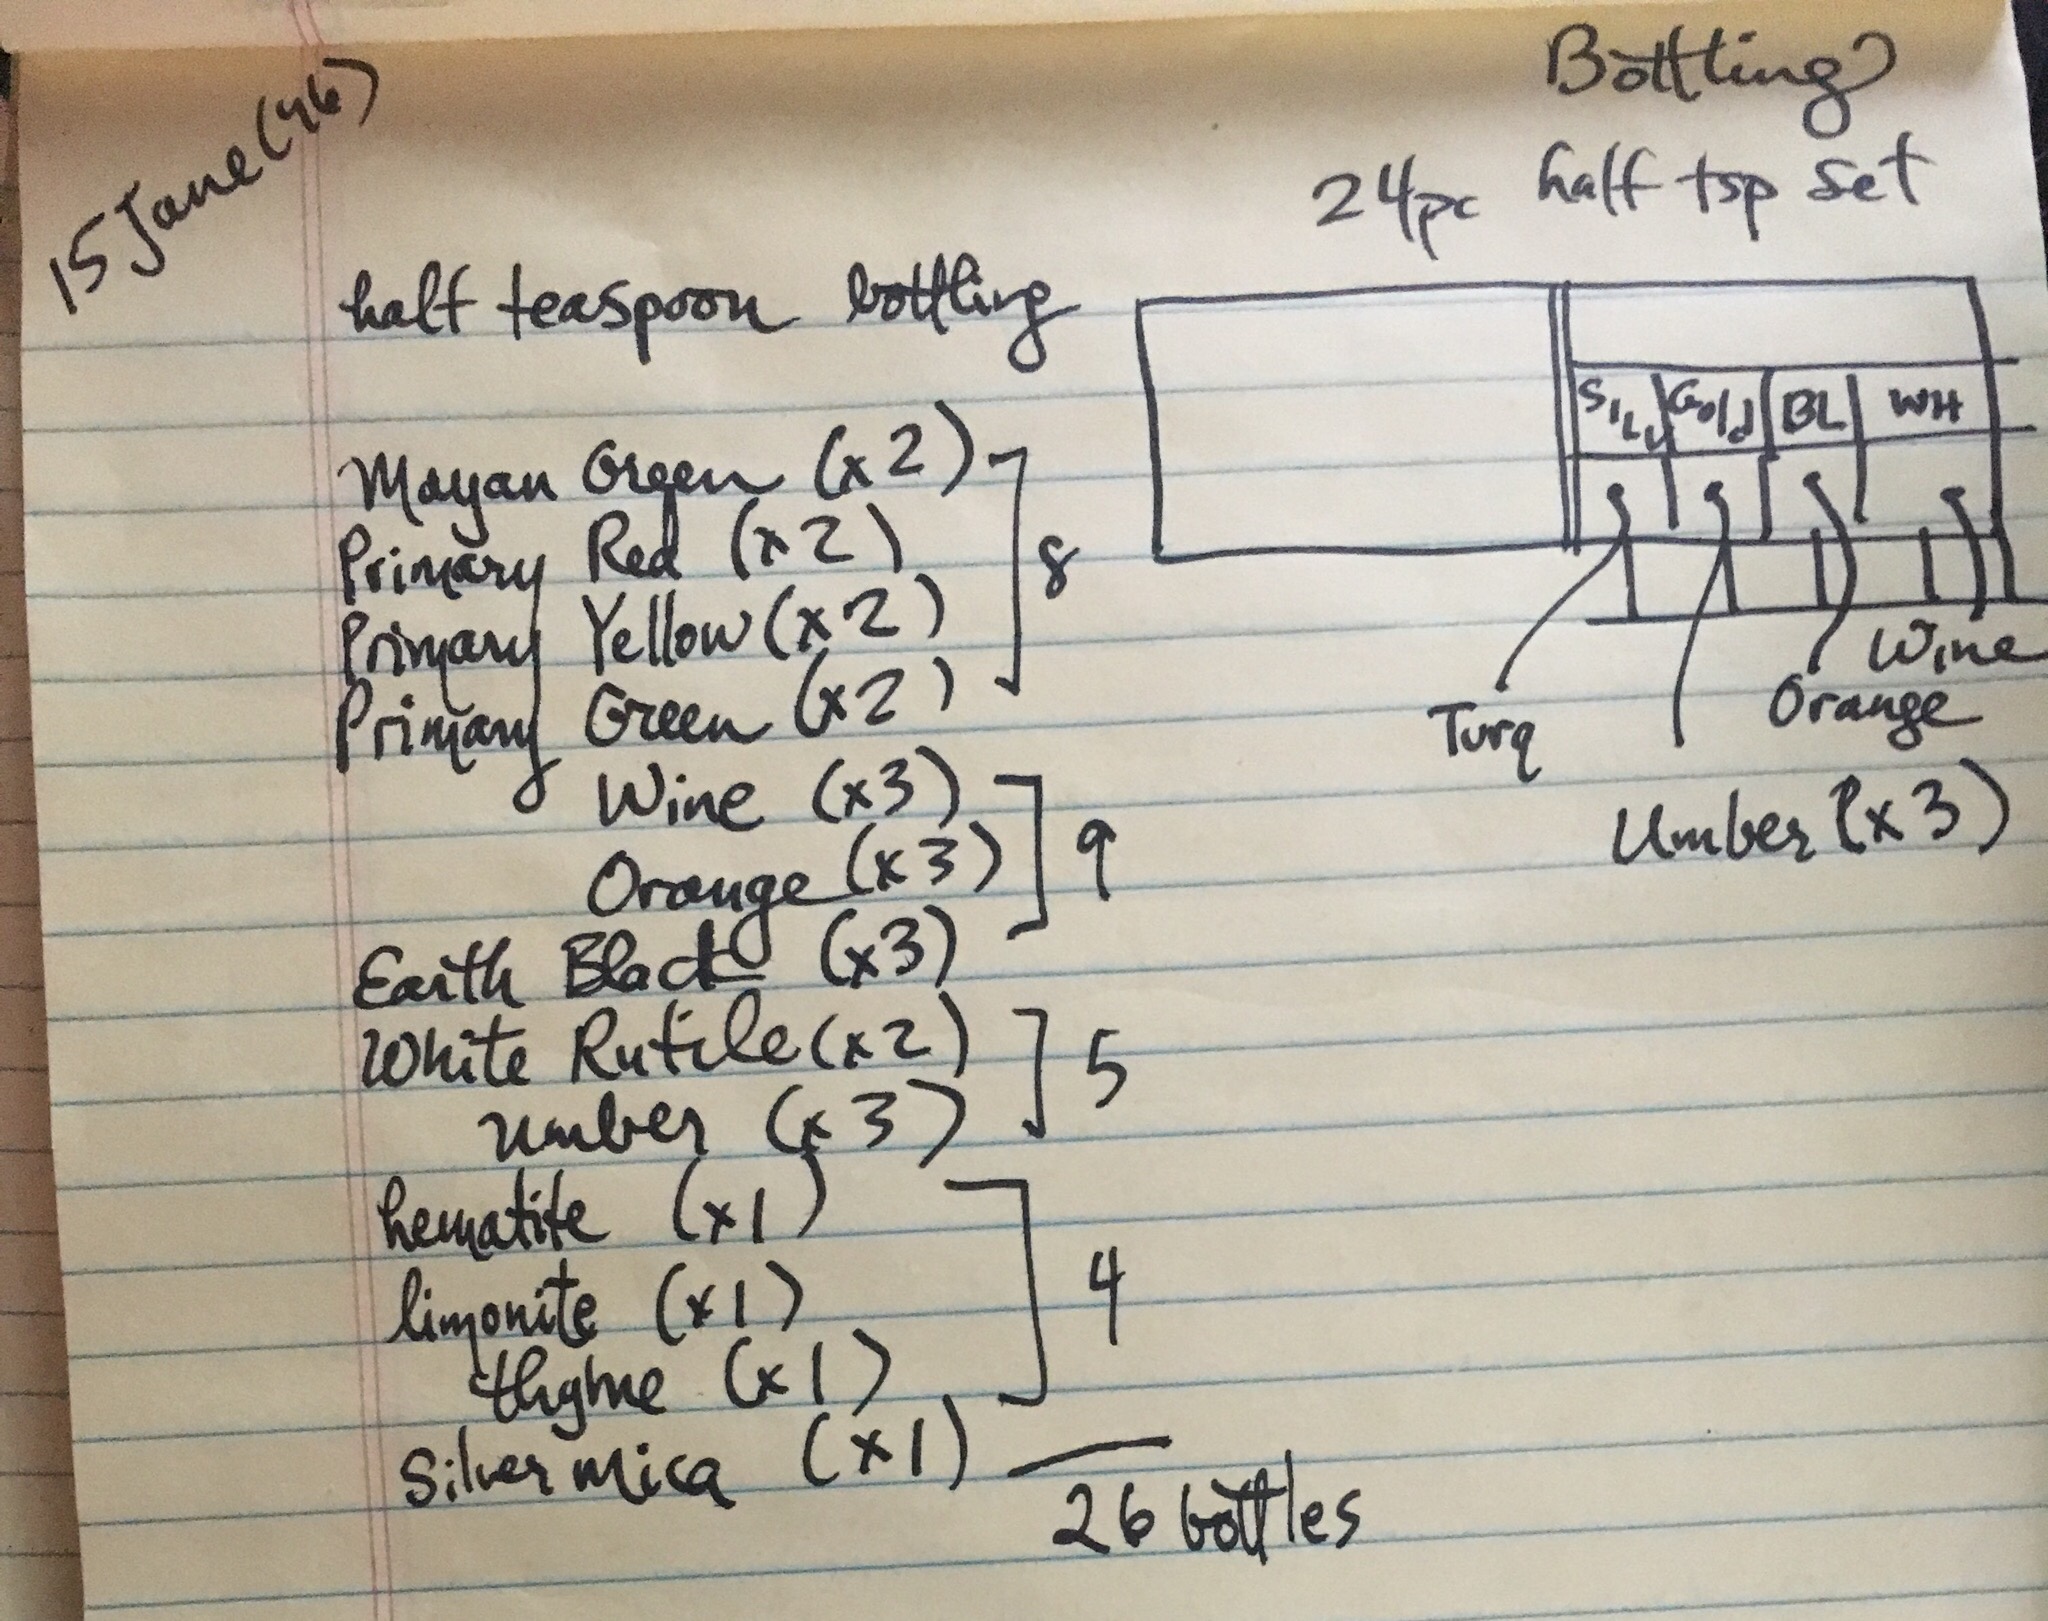 Bottling
15 June (46)
24pc half tsp set
half teaspoon bottling
SILV Gold BL WH
Mayan Green (x2)
Primary Red (x2)
8
Primary Yellow (x2)
Wine
Primary Green (x2)
Turq
Orange
Wine (x3)
Umber (x3)
Orange (x3)
9
Earth Black (x3)
White Rutile (x2)
5
Umber (x3)
hematite (x1)
limonite (x1)
4
thyme (x1)
Silver mica (x1)
26 bottles